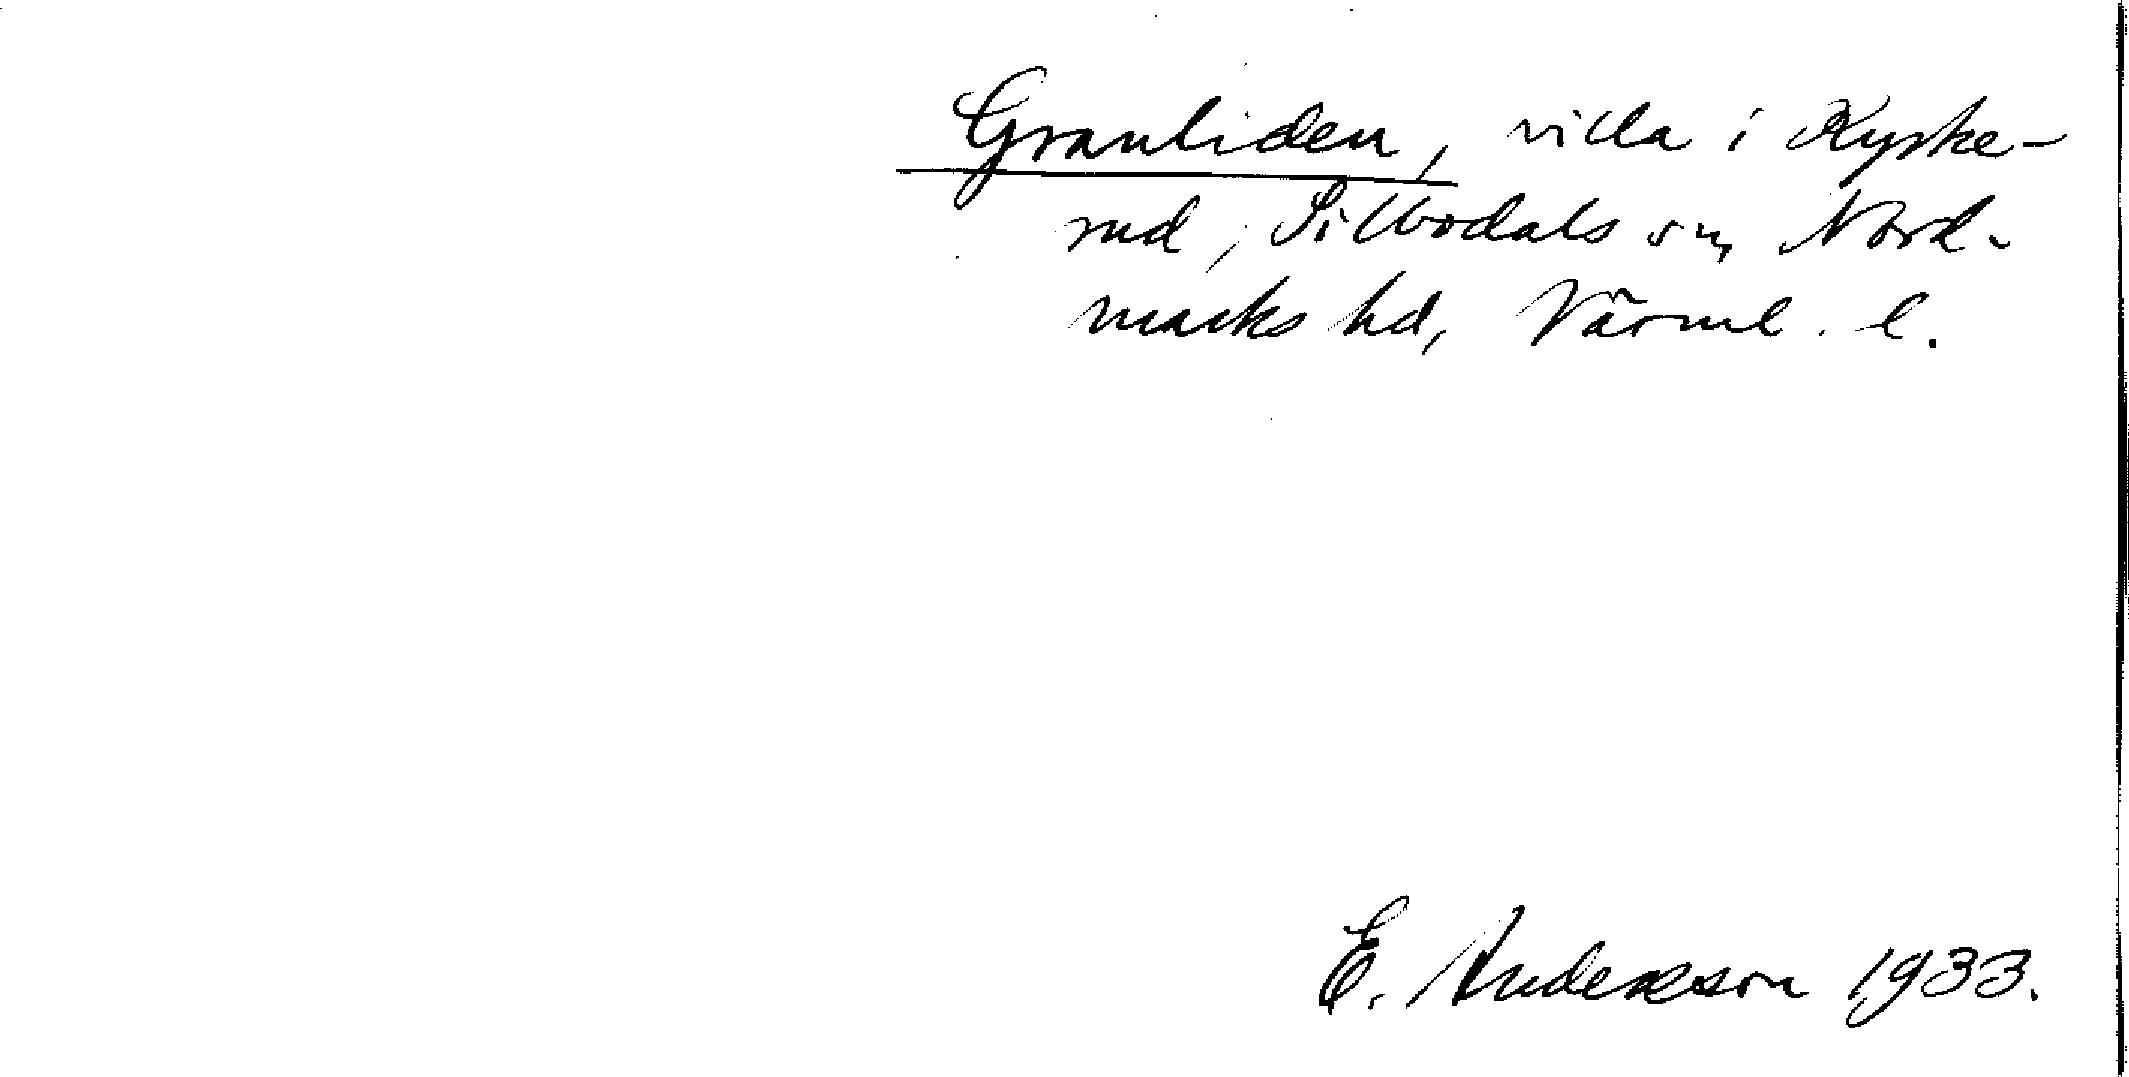 Granliden, villa i Kyrke-
rud, Sillbodals sn, Nord-
marks hd, Värml. l.
E. Andersson 1933.